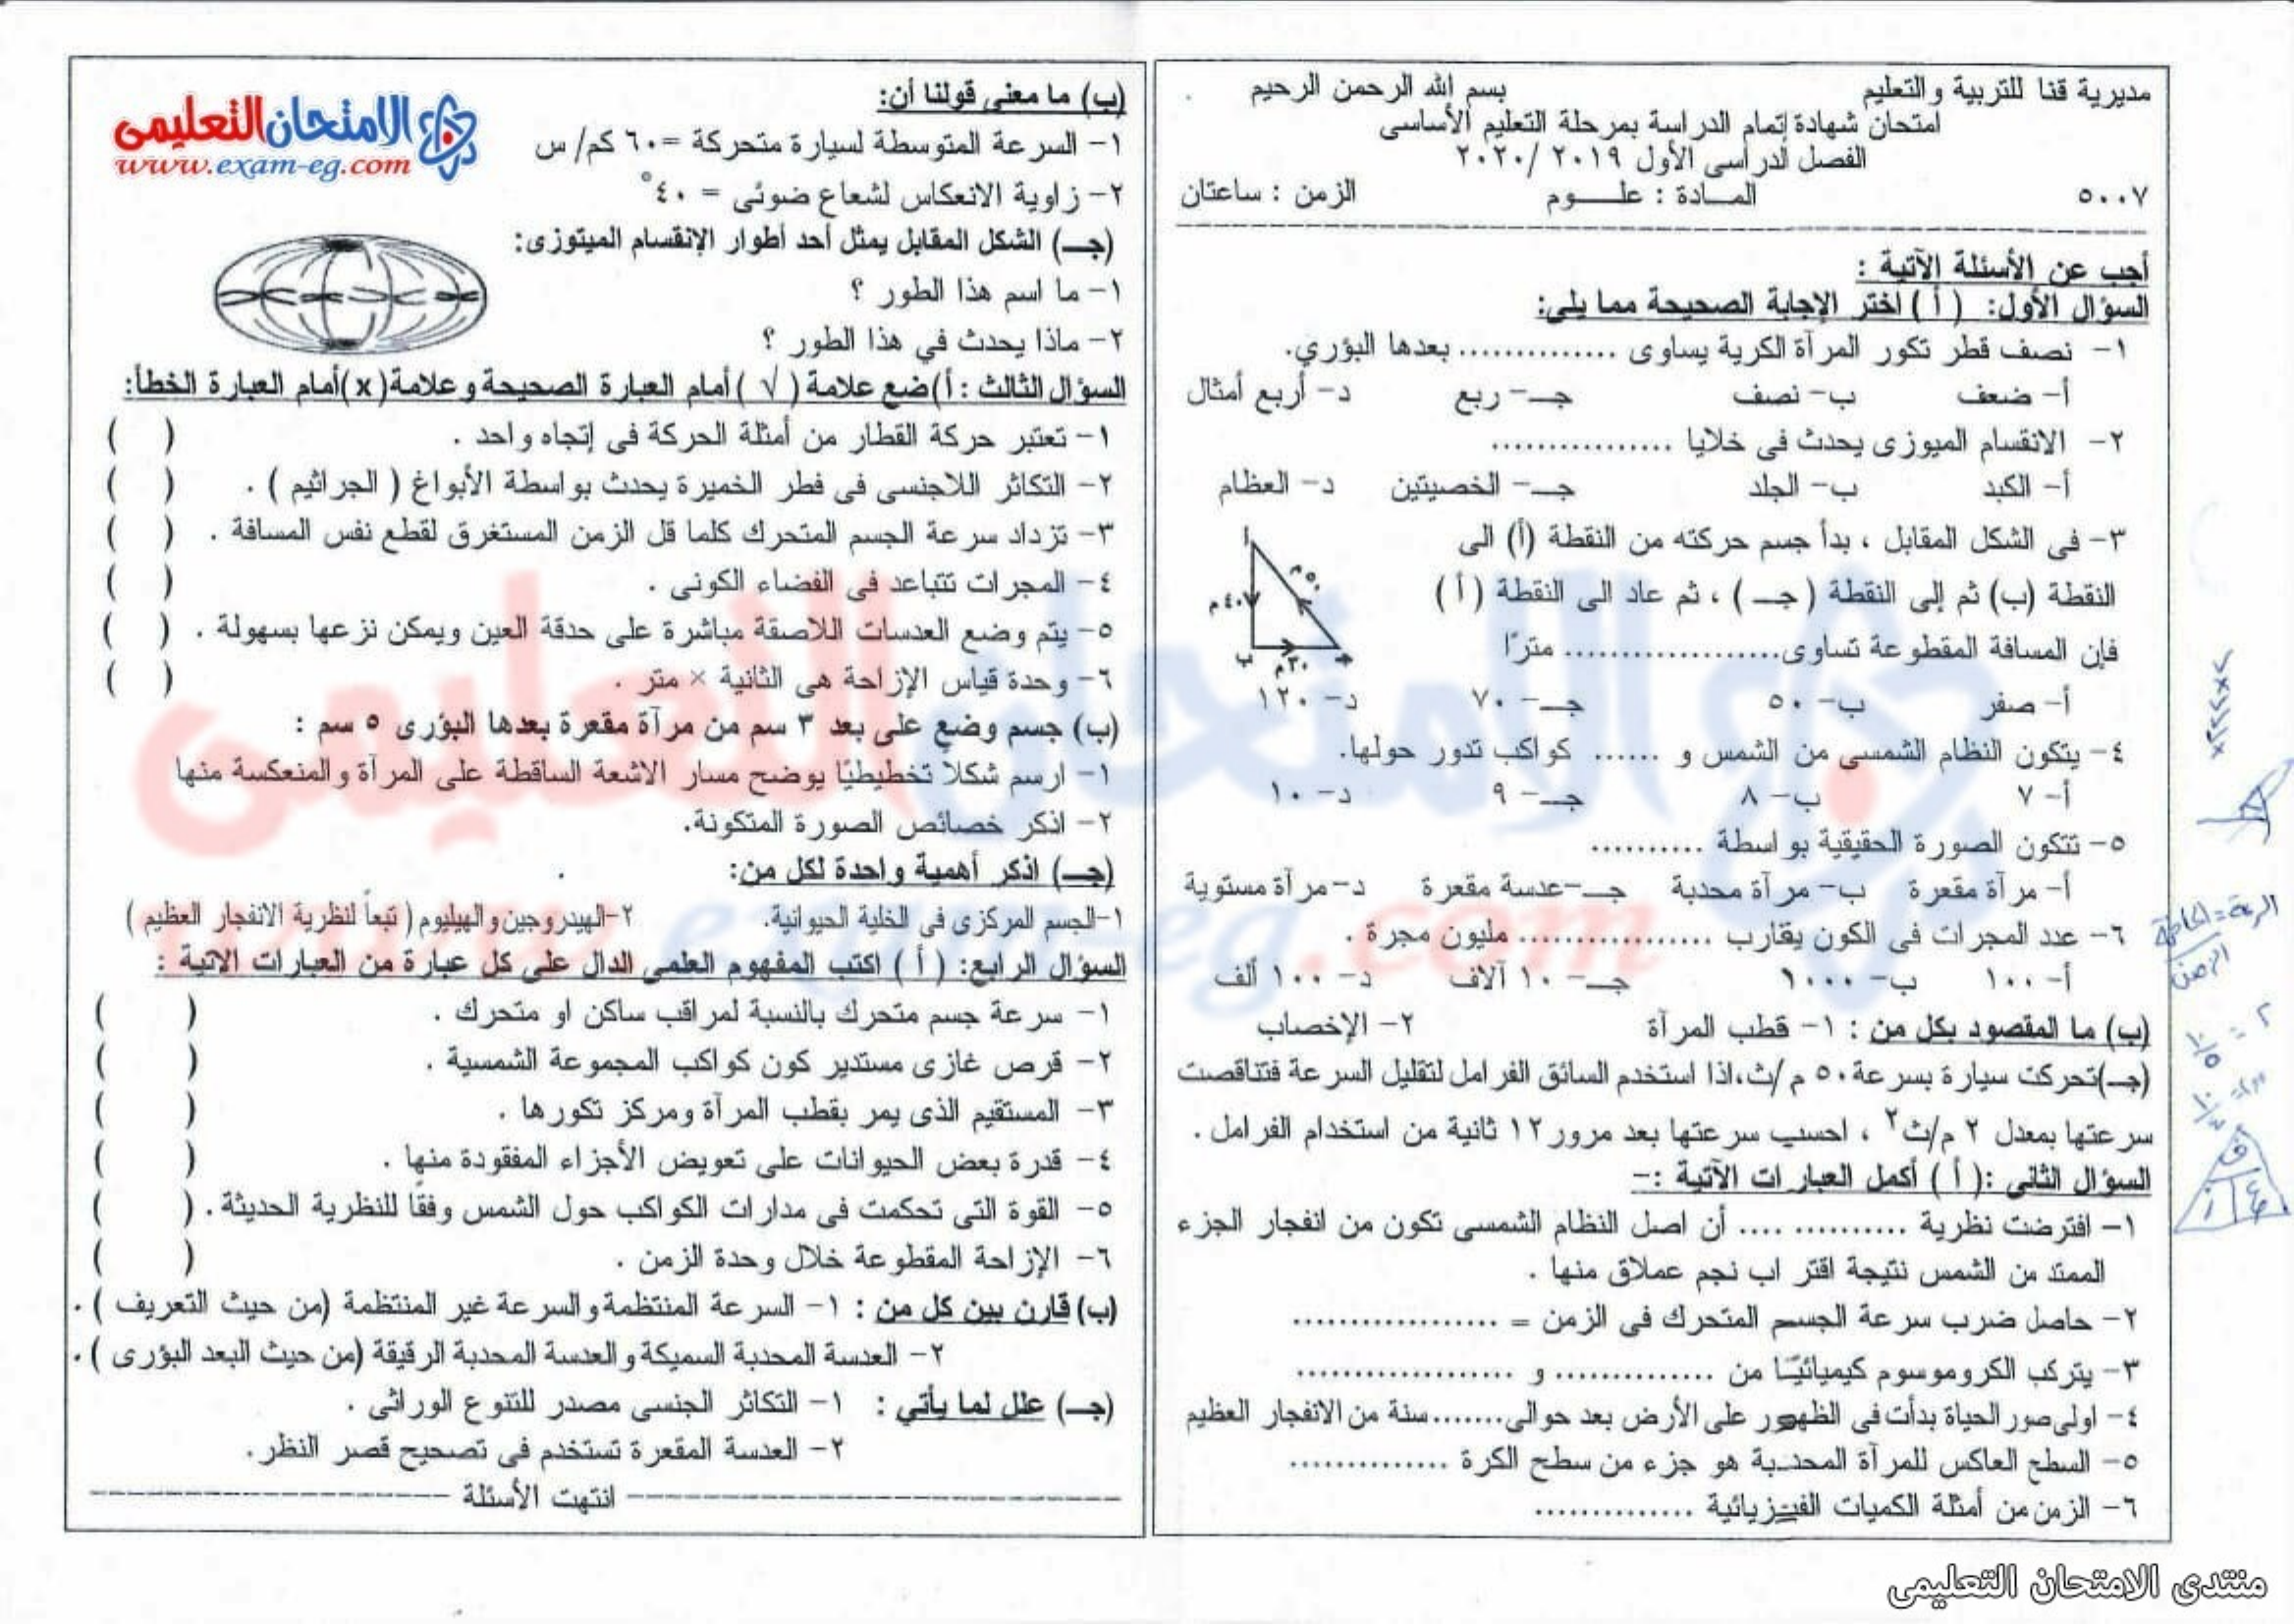 مديرية قنا للتربية والتعليم بسم الله الرحمن الرحيم
امتحان شهادة إتمام الدراسة بمرحلة التعليم الأساسى
الفصل الدراسى الأول ٢٠١٩ /٢٠٢٠
٥٠٠٧ المـــادة : علـــــوم الزمن : ساعتان
أجب عن الأسئلة الآتية :
السؤال الأول: ( أ ) اختر الإجابة الصحيحة مما يلى:
١- نصف قطر تكور المرآة الكرية يساوى .............. بعدها البؤري.
أ- ضعف ب- نصف جـ- ربع د- أربع أمثال
٢- الانقسام الميوزى يحدث فى خلايا ................
أ- الكبد ب- الجلد جـ- الخصيتين د- العظام
٣- فى الشكل المقابل ، بدأ جسم حركته من النقطة (أ) الى
النقطة (ب) ثم إلى النقطة ( جـ ) ، ثم عاد الى النقطة ( أ )
فإن المسافة المقطوعة تساوى................... مترًا
أ
٥٠م
٤٠م
ب ٣٠م جـ
أ- صفر ب- ٥٠ جـ- ٧٠ د- ١٢٠
٤- يتكون النظام الشمسى من الشمس و ...... كواكب تدور حولها.
أ- ٧ ب- ٨ جـ- ٩ د- ١٠
٥- تتكون الصورة الحقيقية بواسطة ..........
أ- مرآة مقعرة ب- مرآة محدبة جـ-عدسة مقعرة د-مرآة مستوية
٦- عدد المجرات فى الكون يقارب ................. مليون مجرة .
أ- ١٠٠ ب- ١٠٠٠ جـ- ١٠ آلاف د- ١٠٠ ألف
(ب) ما المقصود بكل من : ١- قطب المرآة ٢- الإخصاب
(جـ)تحركت سيارة بسرعة ٥٠ م/ث،اذا استخدم السائق الفرامل لتقليل السرعة فتناقصت
سرعتها بمعدل ٢ م/ث٢ ، احسب سرعتها بعد مرور ١٢ ثانية من استخدام الفرامل .
السؤال الثانى :( أ ) أكمل العبارات الآتية :-
١- افترضت نظرية .......... .... أن اصل النظام الشمسى تكون من انفجار الجزء
الممتد من الشمس نتيجة اقتراب نجم عملاق منها .
٢- حاصل ضرب سرعة الجسم المتحرك فى الزمن = ..................
٣- يتركب الكروموسوم كيميائيًا من .............. و ...................
٤- اولى صور الحياة بدأت فى الظهور على الأرض بعد حوالى.......سنة من الانفجار العظيم
٥- السطح العاكس للمرآة المحدبة هو جزء من سطح الكرة ..............
٦- الزمن من أمثلة الكميات الفيزيائية ..............
السرعة = المسافة
الزمن
الامتحان التعليمى
www.exam-eg.com
(ب) ما معنى قولنا أن:
١- السرعة المتوسطة لسيارة متحركة =٦٠ كم/ س
٢- زاوية الانعكاس لشعاع ضوئى = ٤٠°
(جـ) الشكل المقابل يمثل أحد أطوار الإنقسام الميتوزى:
١- ما اسم هذا الطور ؟
٢- ماذا يحدث في هذا الطور ؟
السؤال الثالث : أ)ضع علامة ( √ )أمام العبارة الصحيحة وعلامة(x)أمام العبارة الخطأ:
١- تعتبر حركة القطار من أمثلة الحركة فى إتجاه واحد . ( )
٢- التكاثر اللاجنسى فى فطر الخميرة يحدث بواسطة الأبواغ ( الجراثيم ) . ( )
٣- تزداد سرعة الجسم المتحرك كلما قل الزمن المستغرق لقطع نفس المسافة . ( )
٤- المجرات تتباعد فى الفضاء الكونى . ( )
٥- يتم وضع العدسات اللاصقة مباشرة على حدقة العين ويمكن نزعها بسهولة . ( )
٦- وحدة قياس الإزاحة هى الثانية × متر . ( )
(ب) جسم وضع على بعد ٣ سم من مرآة مقعرة بعدها البؤرى ٥ سم :
١- ارسم شكلا تخطيطيًا يوضح مسار الاشعة الساقطة على المرآة والمنعكسة منها
٢- اذكر خصائص الصورة المتكونة.
(جـ) اذكر أهمية واحدة لكل من:
١-الجسم المركزى فى الخلية الحيوانية. ٢-الهيدروجين والهيليوم ( تبعاً لنظرية الانفجار العظيم )
السؤال الرابع: ( أ ) اكتب المفهوم العلمى الدال على كل عبارة من العبارات الاتية :
١- سرعة جسم متحرك بالنسبة لمراقب ساكن او متحرك . ( )
٢- قرص غازى مستدير كون كواكب المجموعة الشمسية . ( )
٣- المستقيم الذى يمر بقطب المرآة ومركز تكورها . ( )
٤- قدرة بعض الحيوانات على تعويض الأجزاء المفقودة منها . ( )
٥- القوة التى تحكمت فى مدارات الكواكب حول الشمس وفقًا للنظرية الحديثة . ( )
٦- الإزاحة المقطوعة خلال وحدة الزمن . ( )
(ب) قارن بين كل من : ١- السرعة المنتظمة والسرعة غير المنتظمة (من حيث التعريف ) .
٢- العدسة المحدبة السميكة والعدسة المحدبة الرقيقة (من حيث البعد البؤرى ) .
(جـ) علل لما يأتي : ١- التكاثر الجنسى مصدر للتنوع الوراثى .
٢- العدسة المقعرة تستخدم فى تصحيح قصر النظر.
انتهت الأسئلة
منتدى الامتحان التعليمى